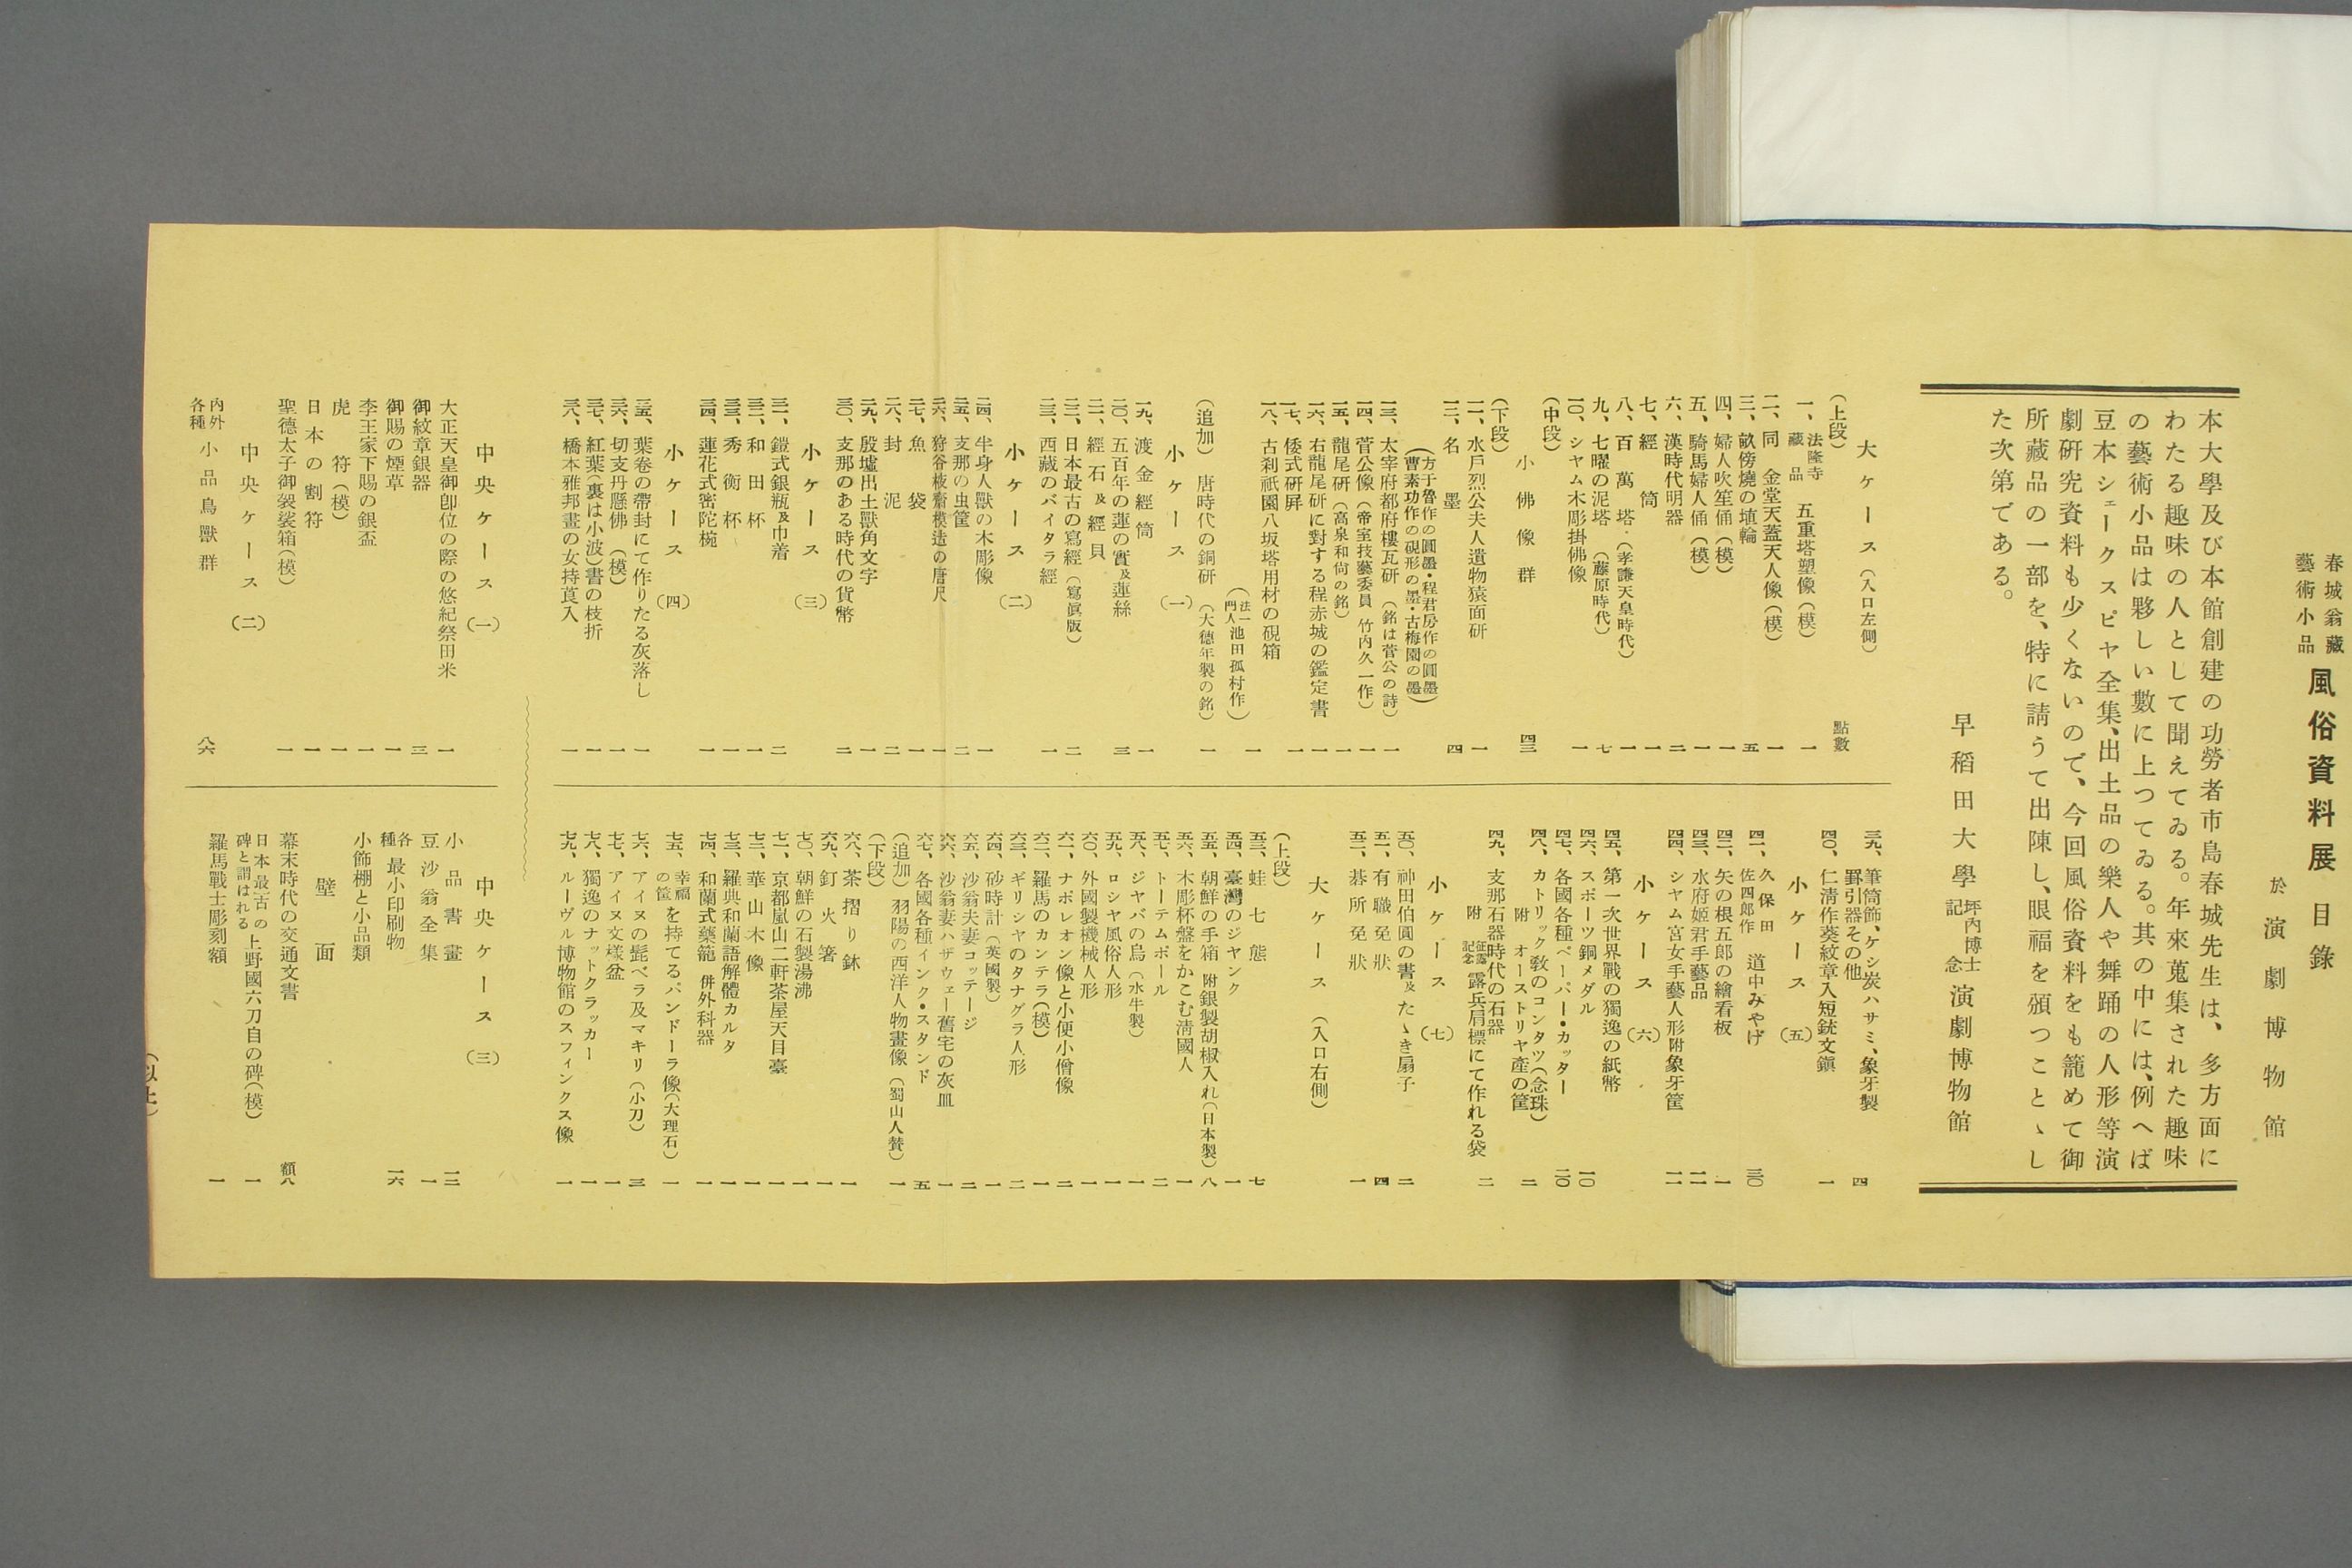 春城翁藏
藝術小品
風俗資料展目錄
於演劇博物館
本大學及び本館創建の功勞者市島春城先生は、多方面に
わたる趣味の人として聞えてゐる。年來蒐集された趣味
の藝術小品は夥しい數に上つてゐる。其の中には、例へば
豆本シェークスピヤ全集、出土品の樂人や舞踊の人形等演
劇硏究資料も少くないので、今回風俗資料をも籠めて御
所藏品の一部を、特に請うて出陳し、眼福を頒つことゝし
た次第である。
早稻田大學坪內博士記念演劇博物館
大ケース（入口左側）
（上段）
點數
一、法隆寺藏品 五重塔塑像（模） 一
二、同 金堂天蓋天人像（模） 一
三、畝傍燒の埴輪 五
四、婦人吹笙俑（模） 一
五、騎馬婦人俑（模） 一
六、漢時代明器 二
七、經筒 一
八、百萬塔（孝謙天皇時代） 一
九、七曜の泥塔（藤原時代） 七
一〇、シヤム木彫掛佛像 一
（中段）
小佛像群 四三
（下段）
一一、水戶烈公夫人遺物猿面硏 一
一二、名墨 四
（方于魯作の圓墨・程君房作の圓墨
曹素功作の硯形の墨・古梅園の墨）
一三、太宰府都府樓瓦硏（銘は菅公の詩） 一
一四、菅公像（帝室技藝委員 竹內久一作） 一
一五、龍尾硏（高泉和尙の銘） 一
一六、右龍尾硏に對する程赤城の鑑定書 一
一七、倭式硏屛 一
一八、古刹祇園八坂塔用材の硯箱 一
（法一門人池田孤村作）
（追加） 唐時代の銅硏（大德年製の銘） 一
小ケース（一）
一九、渡金經筒 一
二〇、五百年の蓮の實及蓮絲 三
二一、經石及經貝
二二、日本最古の寫經（寫眞版） 二
二三、西藏のバイタラ經 一
小ケース（二）
二四、半身人獸の木彫像 一
二五、支那の虫筐 二
二六、狩谷棭齋模造の唐尺 一
二七、魚袋 一
二八、封泥 二
二九、殷墟出土獸角文字 一
三〇、支那のある時代の貨幣 二
小ケース（三）
三一、鎧式銀甁及巾着 二
三二、和田杯 一
三三、秀衡杯 一
三四、蓮花式密陀椀 一
小ケース（四）
三五、葉卷の帶封にて作りたる灰落し 一
三六、切支丹懸佛（模） 一
三七、紅葉（裏は小波）書の枝折 一
三八、橋本雅邦畫の女持莨入 一
三九、筆筒飾、ケシ炭ハサミ、象牙製
罫引器その他 四
四〇、仁淸作葵紋章入短銃文鎭 一
小ケース（五）
四一、久保田佐四郎作 道中みやげ 三〇
四二、矢の根五郎の繪看板 一
四三、水府姬君手藝品
四四、シヤム宮女手藝人形附象牙筐
小ケース（六）
四五、第一次世界戰の獨逸の紙幣
四六、スポーツ銅メダル 一〇
四七、各國各種ペーパー・カッター 二〇
四八、カトリック敎のコンタツ（念珠）
附 オーストリヤ產の筐 二
四九、支那石器時代の石器
附 征露記念露兵肩標にて作れる袋 二
小ケース（七）
五〇、神田伯圓の書及たゝき扇子 二
五一、有職免狀 四
五二、碁所免狀 一
大ケース（入口右側）
（上段）
五三、蛙七態 七
五四、臺灣のジヤンク 一
五五、朝鮮の手箱 附銀製胡椒入れ（日本製） 八
五六、木彫杯盤をかこむ淸國人 一
五七、トーテムポール 二
五八、ジヤバの烏（水牛製） 一
五九、ロシヤ風俗人形 一
六〇、外國製機械人形 一
六一、ナポレオン像と小便小僧像 二
六二、羅馬のカンテラ（模） 一
六三、ギリシヤのタナグラ人形 二
六四、砂時計（英國製） 一
六五、沙翁夫妻コッテージ 二
六六、沙翁妻ハザウェー舊宅の灰皿 一
六七、各國各種インク・スタンド 五
（追加）羽陽の西洋人物畫像（蜀山人贊） 一
（下段）
六八、茶摺り鉢 一
六九、釘火箸 一
七〇、朝鮮の石製湯沸 一
七一、京都嵐山二軒茶屋天目臺 一
七二、華山木像 一
七三、羅典和蘭語解體カルタ 一
七四、和蘭式藥籠 倂外科器 一
七五、幸福の筐を持てるパンドーラ像（大理石） 一
七六、アイヌの髭ベラ及マキリ（小刀） 三
七七、アイヌ文樣盆 一
七八、獨逸のナットクラッカー 一
七九、ルーヴル博物館のスフィンクス像 一
中央ケース（一）
大正天皇御卽位の際の悠紀祭田米 一
御紋章銀器 三
御賜の煙草 一
李王家下賜の銀盃 一
虎符（模） 一
日本の割符 一
聖德太子御袈裟箱（模） 一
中央ケース（二）
內外各種 小品鳥獸群 八六
中央ケース（三）
小品書畫 一二
豆沙翁全集 一
各種最小印刷物 一六
小飾棚と小品類
壁面
幕末時代の交通文書 額八
日本最古の碑と謂はれる上野國六刀自の碑（模） 一
羅馬戰士彫刻額 一
（以上）